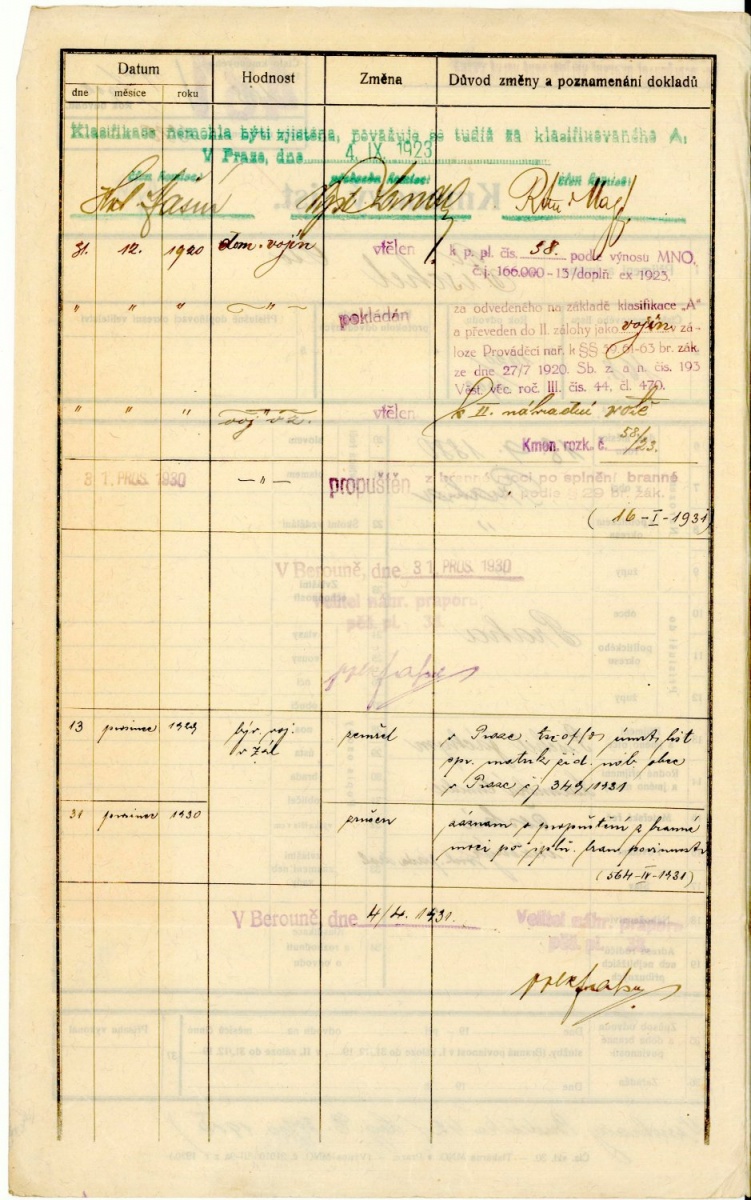 Datum Hodnost Změna Důvod změny a poznamenání dokladů
dne měsíce roku
Klasifikace nemohla býti zjištěna, považuje se tudíž za klasifikovaného A.
V Praze, dne 4. IX. 1923
člen komise: předseda komise: člen komise:
31. 12. 1920 dom. vojín vtělen k p. pl. čís. 38. podle výnosu MNO,
č. j. 166.000-13/doplň. ex 1923.
" " " — " — pokládán za odvedeného na základě klasifikace „A"
a převeden do II. zálohy jako vojín v zá-
loze Prováděcí nař. k §§ 59, 61-63 br. zák.
ze dne 27/7 1920. Sb. z. a n. čís. 193
Věst. věc. roč. III. čís. 44, čl. 470.
" " " voj. v z. vtělen k II. náhradní rotě
Kmen. rozk. č. 58/23.
31. PROS. 1930 — " — propuštěn z branné moci po splnění branné
podle § 29 br. zák.
(16-I-1931)
V Berouně, dne 31. PROS. 1930
Velitel náhr. praporu
pěš. pl.
13 prosince 1929 býv. voj. zemřel v Praze. úmrt. list
v zál. spr. matrik žid. náb. obce
v Praze čj 349/1931
31 prosince 1930 zrušen záznam o propuštění z branné
moci po spln. bran. povinnosti
(564-IV-1931)
V Berouně, dne 4/4. 1931. Velitel náhr. praporu
pěš. pl.